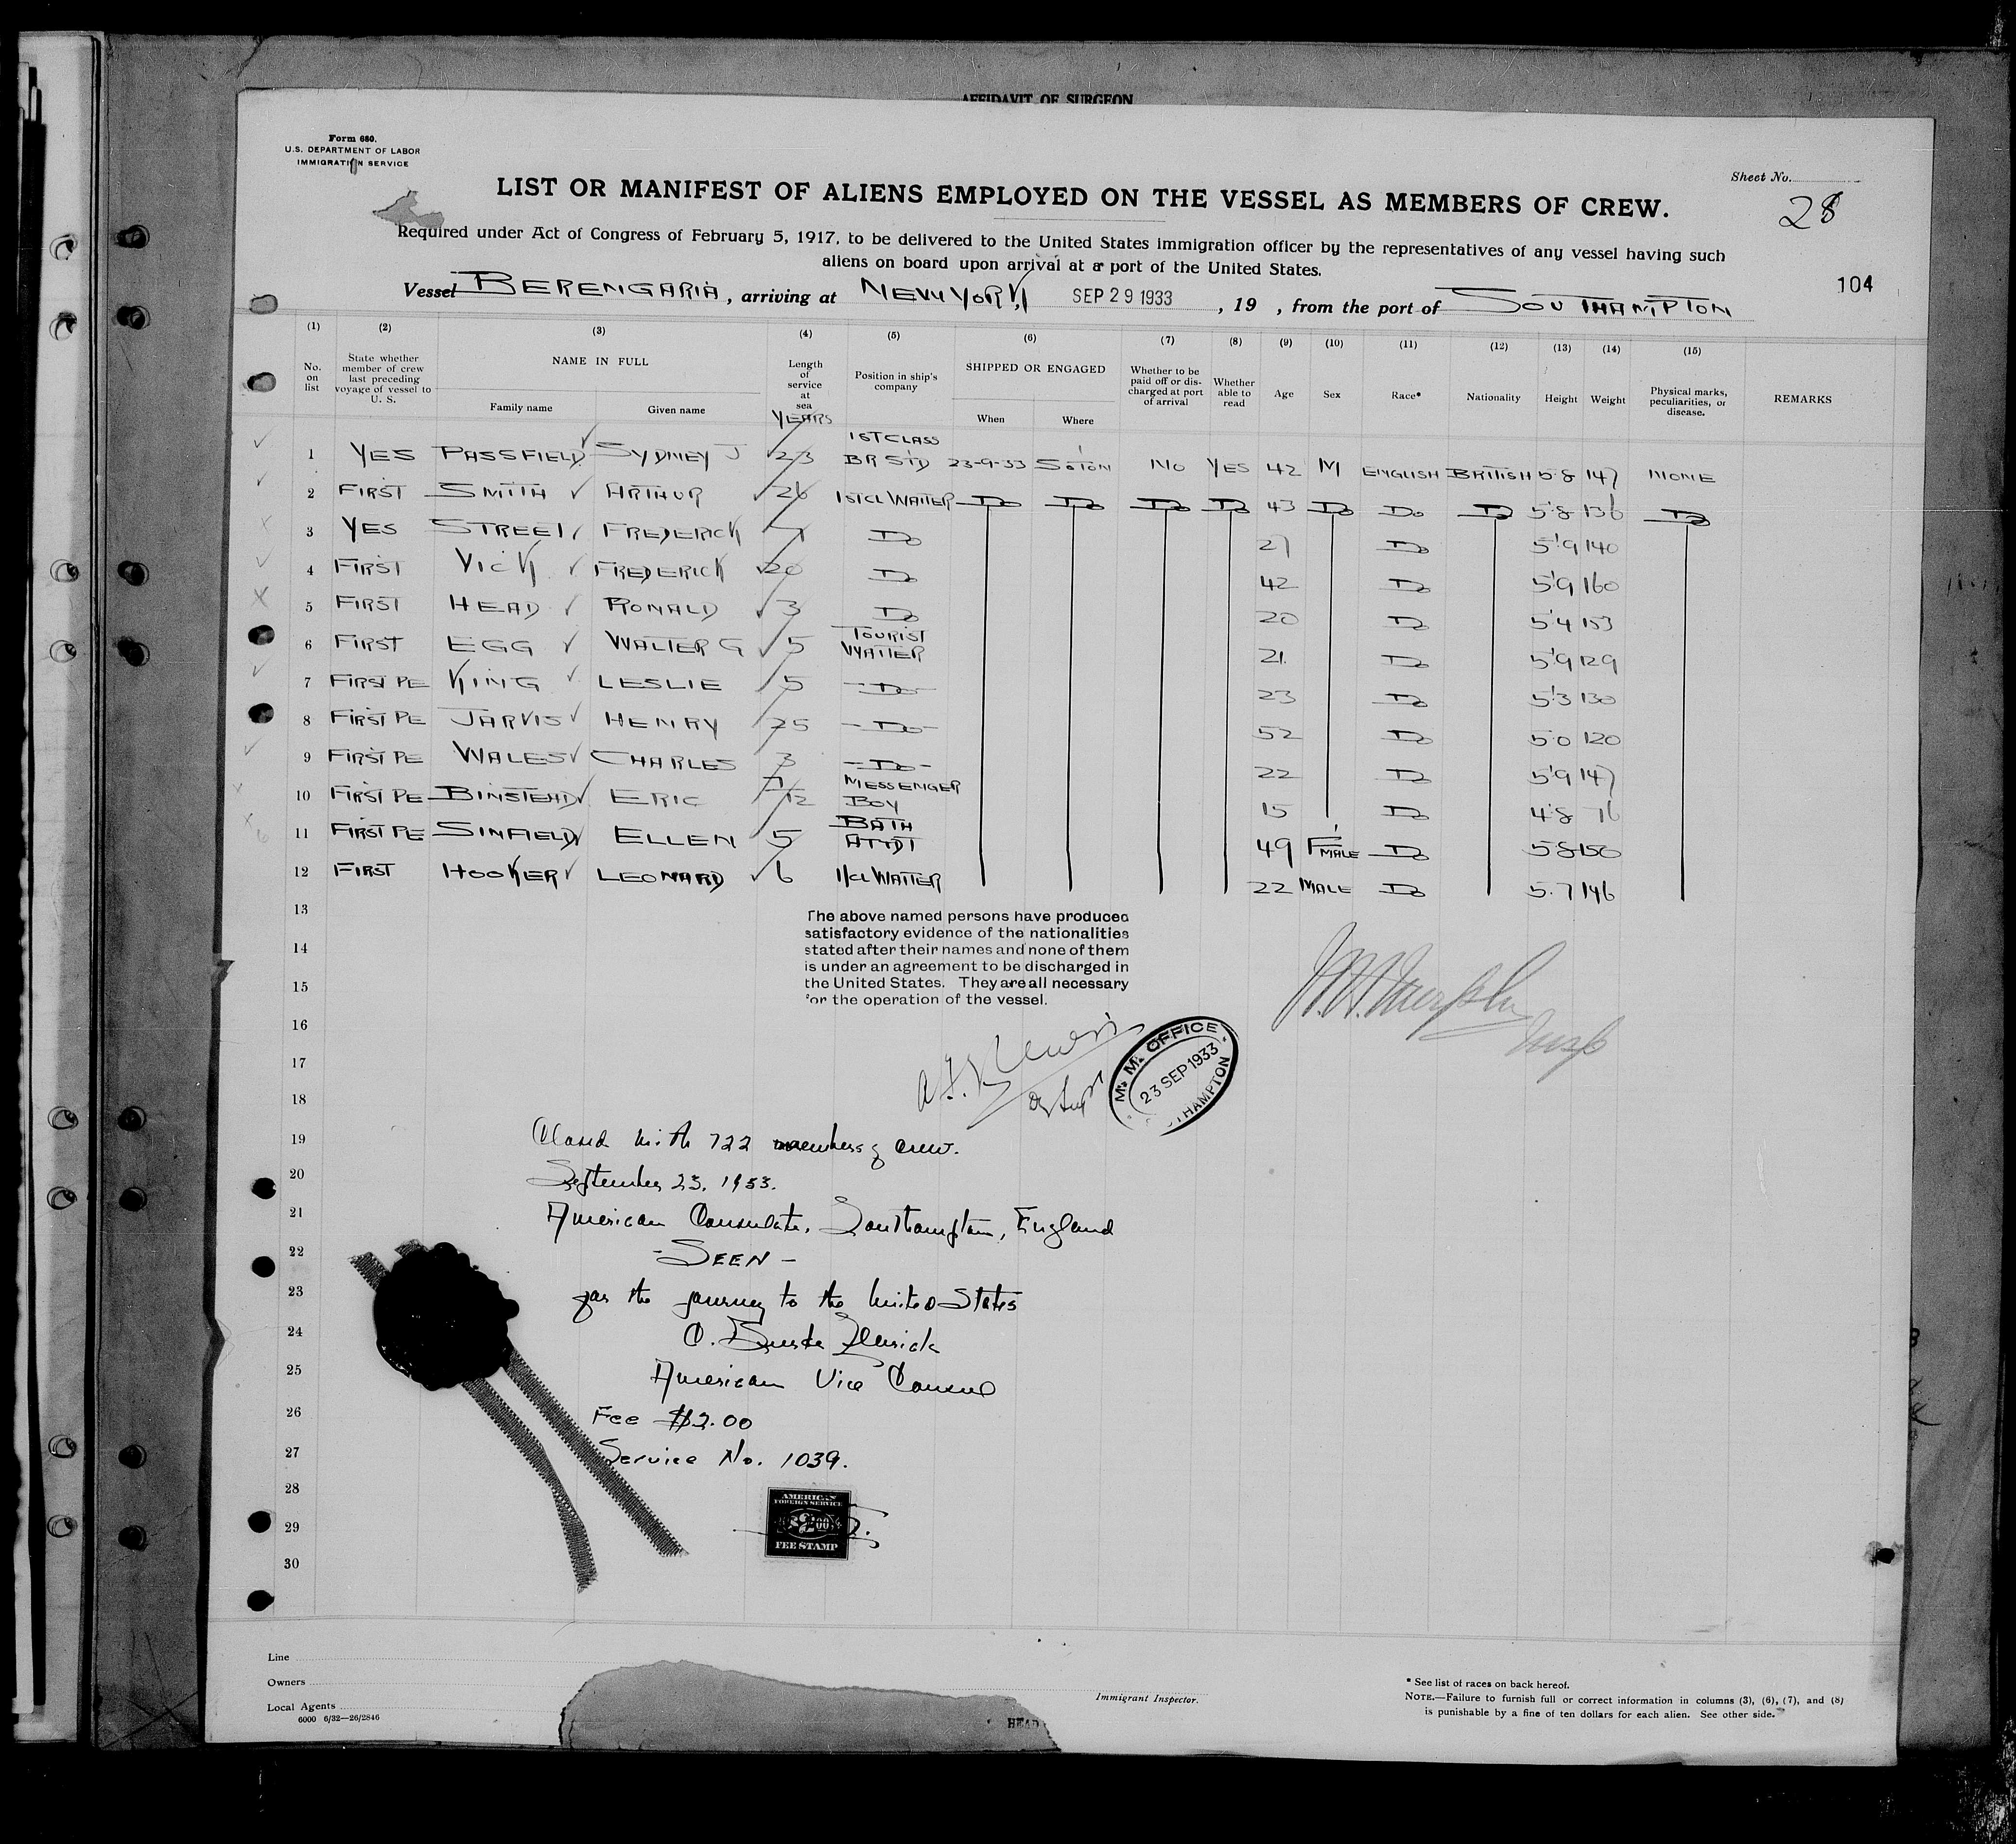 AFFIDAVIT OF SURGEON
Form 680.
U.S. DEPARTMENT OF LABOR
IMMIGRATION SERVICE
Sheet No.
28
LIST OR MANIFEST OF ALIENS EMPLOYED ON THE VESSEL AS MEMBERS OF CREW.
Required under Act of Congress of February 5, 1917, to be delivered to the United States immigration officer by the representatives of any vessel having such
aliens on board upon arrival at a port of the United States.
104
Vessel BERENGARIA, arriving at NEW YORK, SEP 29 1933, 19 , from the port of SOUTHAMPTON
(1) (2) (3) (4) (5) (6) (7) (8) (9) (10) (11) (12) (13) (14) (15)
No. on list
State whether member of crew last preceding voyage of vessel to U. S.
NAME IN FULL
Family name
Given name
Length of service at sea
YEARS
Position in ship's company
SHIPPED OR ENGAGED
When
Where
Whether to be paid off or discharged at port of arrival
Whether able to read
Age
Sex
Race*
Nationality
Height
Weight
Physical marks, peculiarities, or disease.
REMARKS
1 YES PASSFIELD SYDNEY J 23 1ST CLASS BR STD 23-9-33 SOTON NO YES 42 M ENGLISH BRITISH 5'8 147 NONE
2 FIRST SMITH ARTHUR 26 1STCL WAITER Do Do Do Do 43 Do Do Do 5'8 136 Do
3 YES STREET FREDERICK 7 Do 27 Do 5'9 140
4 FIRST VICK FREDERICK 20 Do 42 Do 5'9 160
5 FIRST HEAD RONALD 3 Do 20 Do 5'4 153
6 FIRST EGG WALTER G 5 TOURIST WAITER 21 Do 5'9 129
7 FIRST PE KING LESLIE 5 Do 23 Do 5'3 130
8 FIRST PE JARVIS HENRY 25 Do 52 Do 5'0 120
9 FIRST PE WALES CHARLES 3 Do 22 Do 5'9 147
10 FIRST PE BINSTEAD ERIC 7/12 MESSENGER BOY 15 Do 4'8 76
11 FIRST PE SINFIELD ELLEN 5 BATH ATTDT 49 FEMALE Do 5'8 150
12 FIRST HOOKER LEONARD 6 1/CL WAITER 22 MALE Do 5.7 146
13
The above named persons have produced
satisfactory evidence of the nationalities
14
stated after their names and none of them
is under an agreement to be discharged in
15
the United States. They are all necessary
for the operation of the vessel.
16
17
18
M. M. OFFICE
23 SEP 1933
SOUTHAMPTON
19 Closed with 722 members of crew.
20 September 23, 1933.
21 American Consulate, Southampton, England
22 - SEEN -
23 for the journey to the United States
24
25 American Vice Consul
26 Fee $2.00
27 Service No. 1039.
28
AMERICAN
FOREIGN SERVICE
29
FEE STAMP
30
Line
Owners
Local Agents
6000 6/32—26/2846
HEAD
Immigrant Inspector.
* See list of races on back hereof.
NOTE.—Failure to furnish full or correct information in columns (3), (6), (7), and (8)
is punishable by a fine of ten dollars for each alien. See other side.